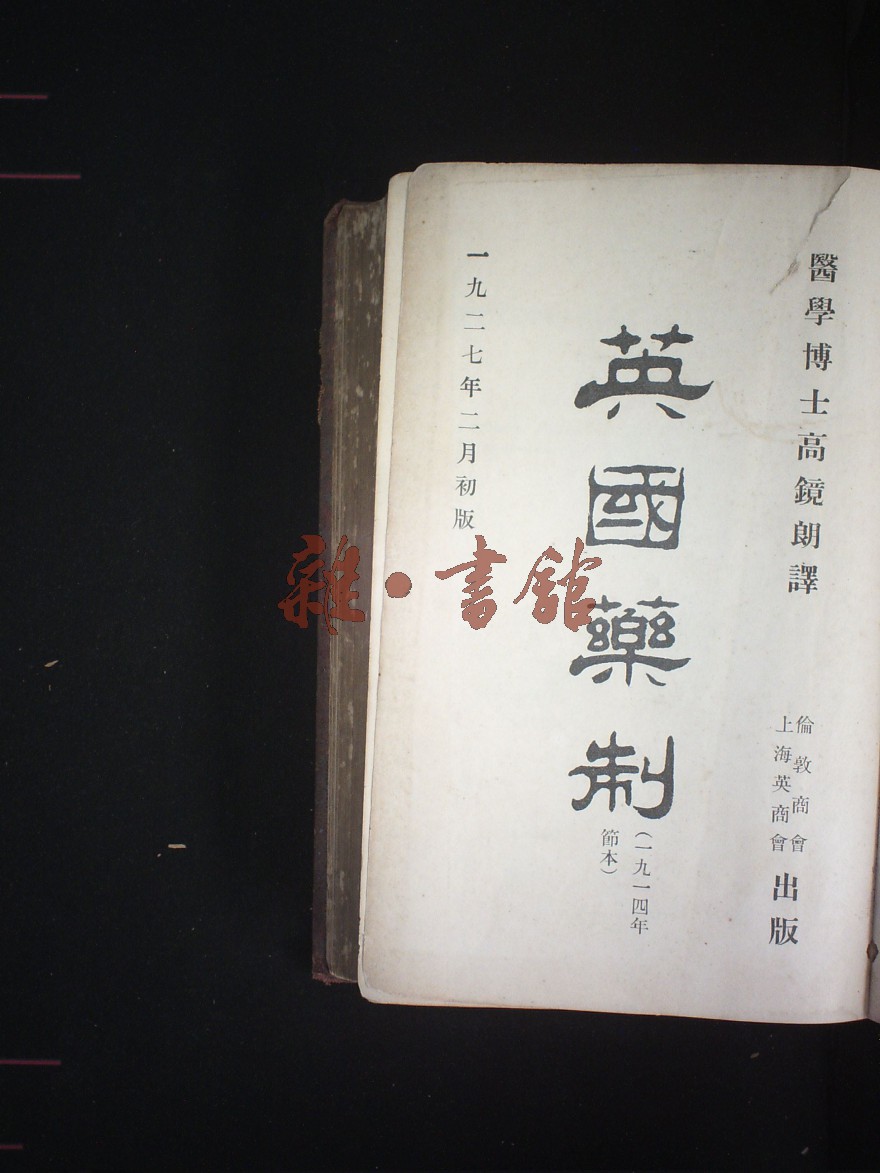 醫學博士高鏡朗譯
倫敦商會
上海英商會
出版
英國藥制
(一九一四年
節本)
一九二七年二月初版
雜·書館